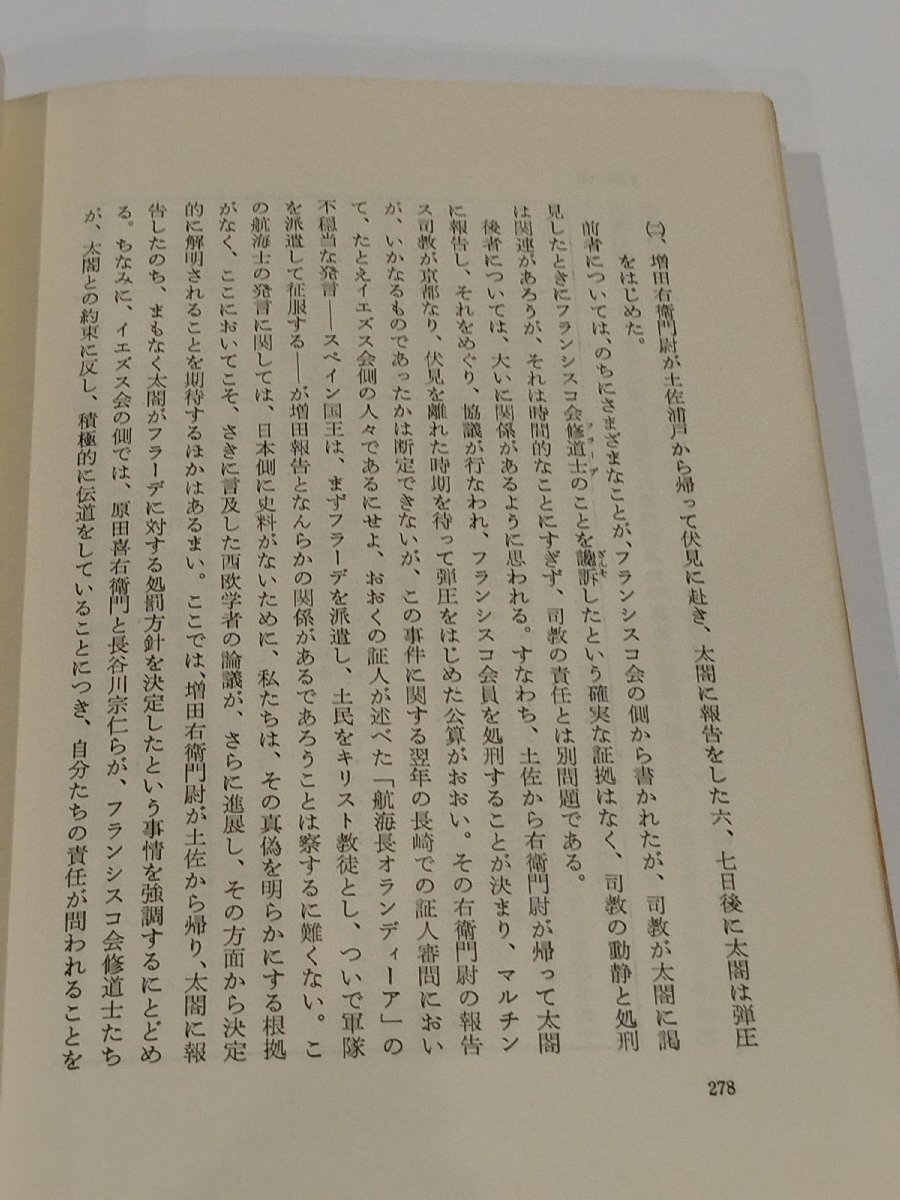 ㈡、増田右衛門尉が土佐浦戸から帰って伏見に赴き、太閤に報告をした六、七日後に太閤は弾圧
をはじめた。
前者については、のちにさまざまなことが、フランシスコ会の側から書かれたが、司教が太閤に謁
見したときにフランシスコ会修道士のことを讒訴したという確実な証拠はなく、司教の動静と処刑
フラーデ
ざんそ
は関連があろうが、それは時間的なことにすぎず、司教の責任とは別問題である。
後者については、大いに関係があるように思われる。すなわち、土佐から右衛門尉が帰って太閤
に報告し、それをめぐり、協議が行なわれ、フランシスコ会員を処刑することが決まり、マルチン
ス司教が京都なり、伏見を離れた時期を待って弾圧をはじめた公算がおおい。その右衛門尉の報告
が、いかなるものであったかは断定できないが、この事件に関する翌年の長崎での証人審問におい
て、たとえイエズス会側の人々であるにせよ、おおくの証人が述べた「航海長オランディーア」の
不穏当な発言――スペイン国王は、まずフラーデを派遣し、土民をキリスト教徒とし、ついで軍隊
を派遣して征服する――が増田報告となんらかの関係があるであろうことは察するに難くない。こ
の航海士の発言に関しては、日本側に史料がないために、私たちは、その真偽を明らかにする根拠
がなく、ここにおいてこそ、さきに言及した西欧学者の論議が、さらに進展し、その方面から決定
的に解明されることを期待するほかはあるまい。ここでは、増田右衛門尉が土佐から帰り、太閤に報
告したのち、まもなく太閤がフラーデに対する処罰方針を決定したという事情を強調するにとどめ
る。ちなみに、イエズス会の側では、原田喜右衛門と長谷川宗仁らが、フランシスコ会修道士たち
が、太閤との約束に反し、積極的に伝道をしていることにつき、自分たちの責任が問われることを
278